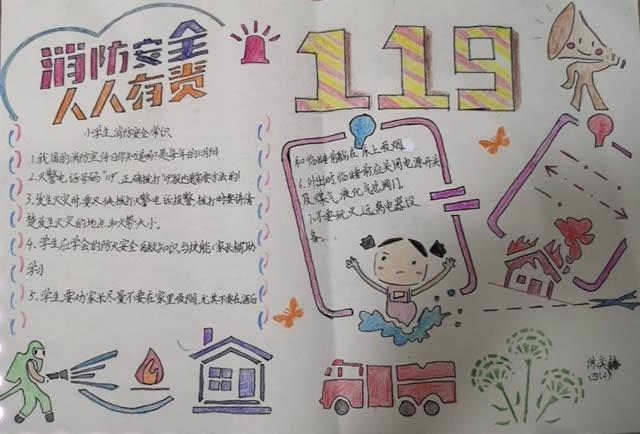 消防安全
人人有责
119
小学生消防安全常识
1.我国的消防宣传日和火
2.火警电话号码"119"，正确拨打
3.发生火灾时要尽快拨打火警电话报警，拨打时要讲清
楚发生火灾的地点和火势大小。
4.学生应学会的防火安全
知识与技能（家长辅助
学习
5.学生要劝家长尽量不要在家里吸烟，尤其不要在酒后
和临睡前躺在床上吸烟
6.外出时临睡前应关闭电源开关
及煤气液化气
阀门
7.不要玩火远离电器设
备...
四(2)